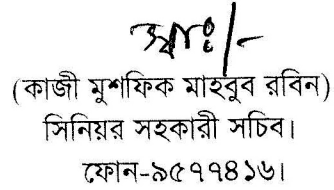 স্বাঃ/-
(কাজী মুশফিক মাহবুব রবিন)
সিনিয়র সহকারী সচিব।
ফোন-৯৫৭৭৪১৬।